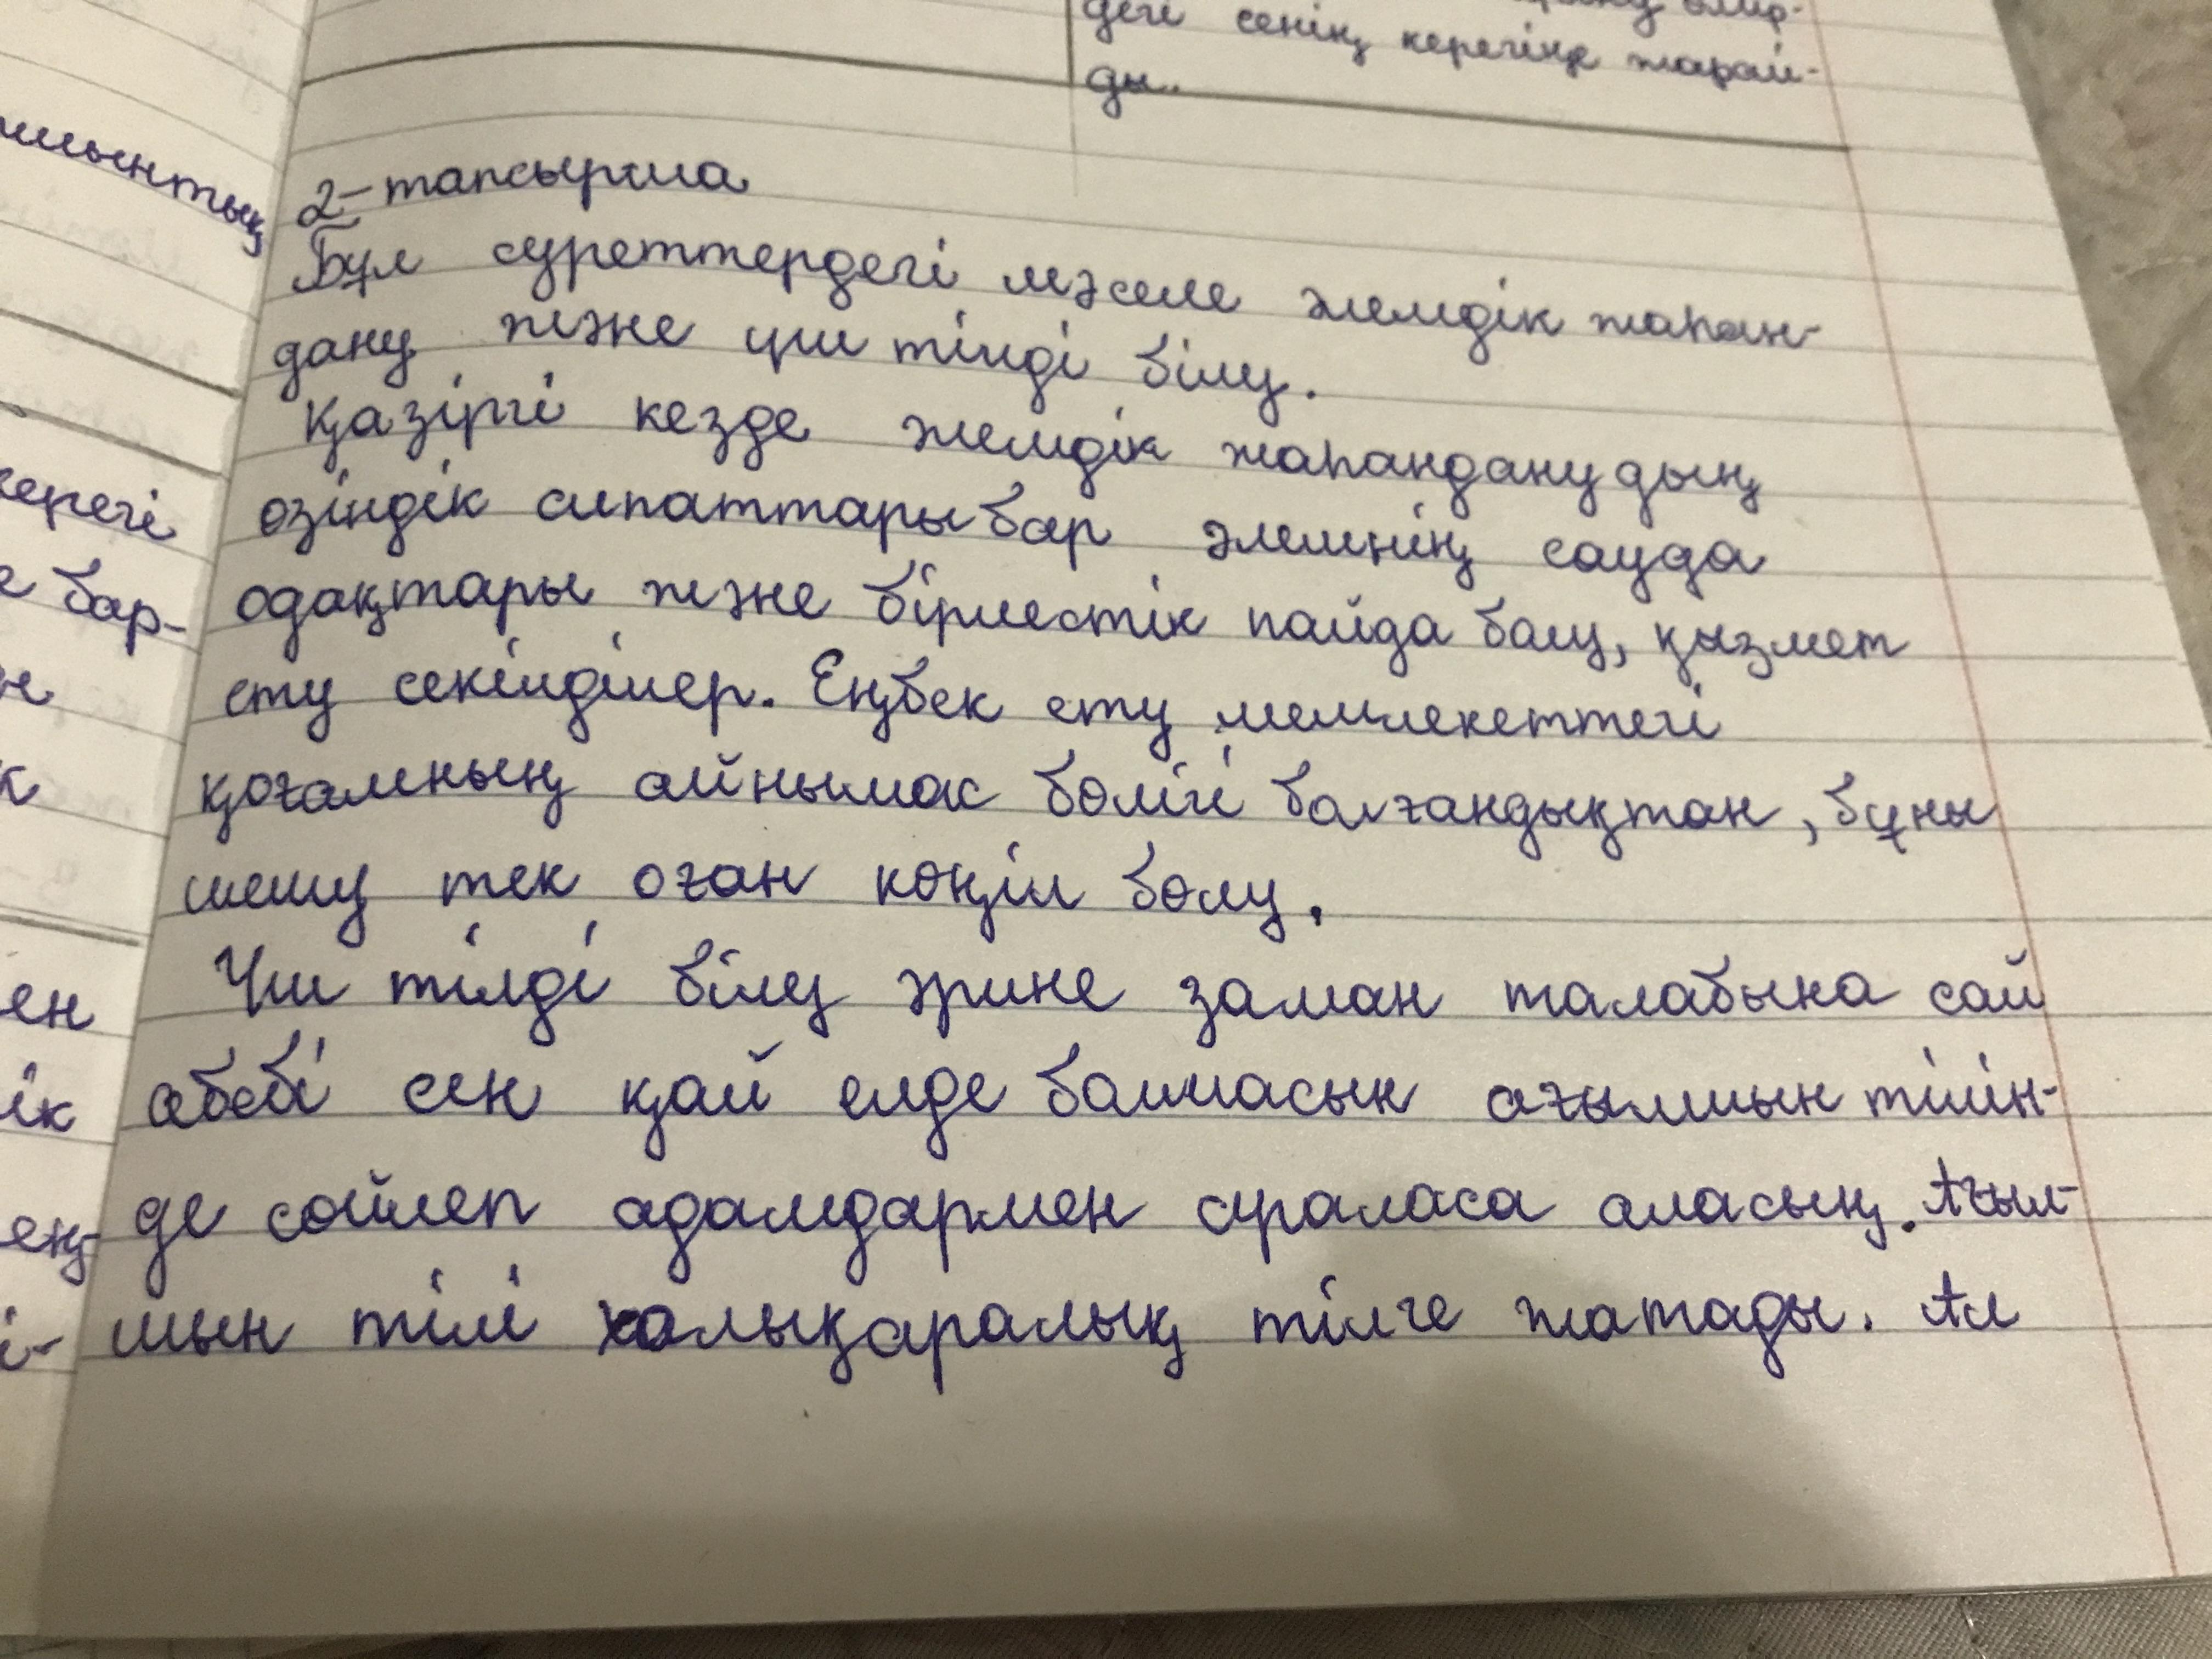 деги сенің керегіңе жарай-
ды.
2-тапсырма
Бұл суреттердегі мәселе әлемдік жаһан-
дану және үш тілді білу.
Қазіргі кезде әлемдік жаһанданудың
өзіндік сипаттары бар әлемнің сауда
одақтары және бірлестік пайда болу, қызмет
ету секілділер. Еңбек ету мемлекеттегі
қоғамның айнымас бөлігі болғандықтан, бұны
шешу тек оған көңіл бөлу.
Үш тілді білу әрине заман талабына сай
себебі сен қай елде болмасын ағылшын тілін-
де сөйлеп адамдармен араласа аласың. Ағыл-
шын тілі халықаралық тілге жатады. Ал
керегі
бар-
ен
ік
ең-
і-